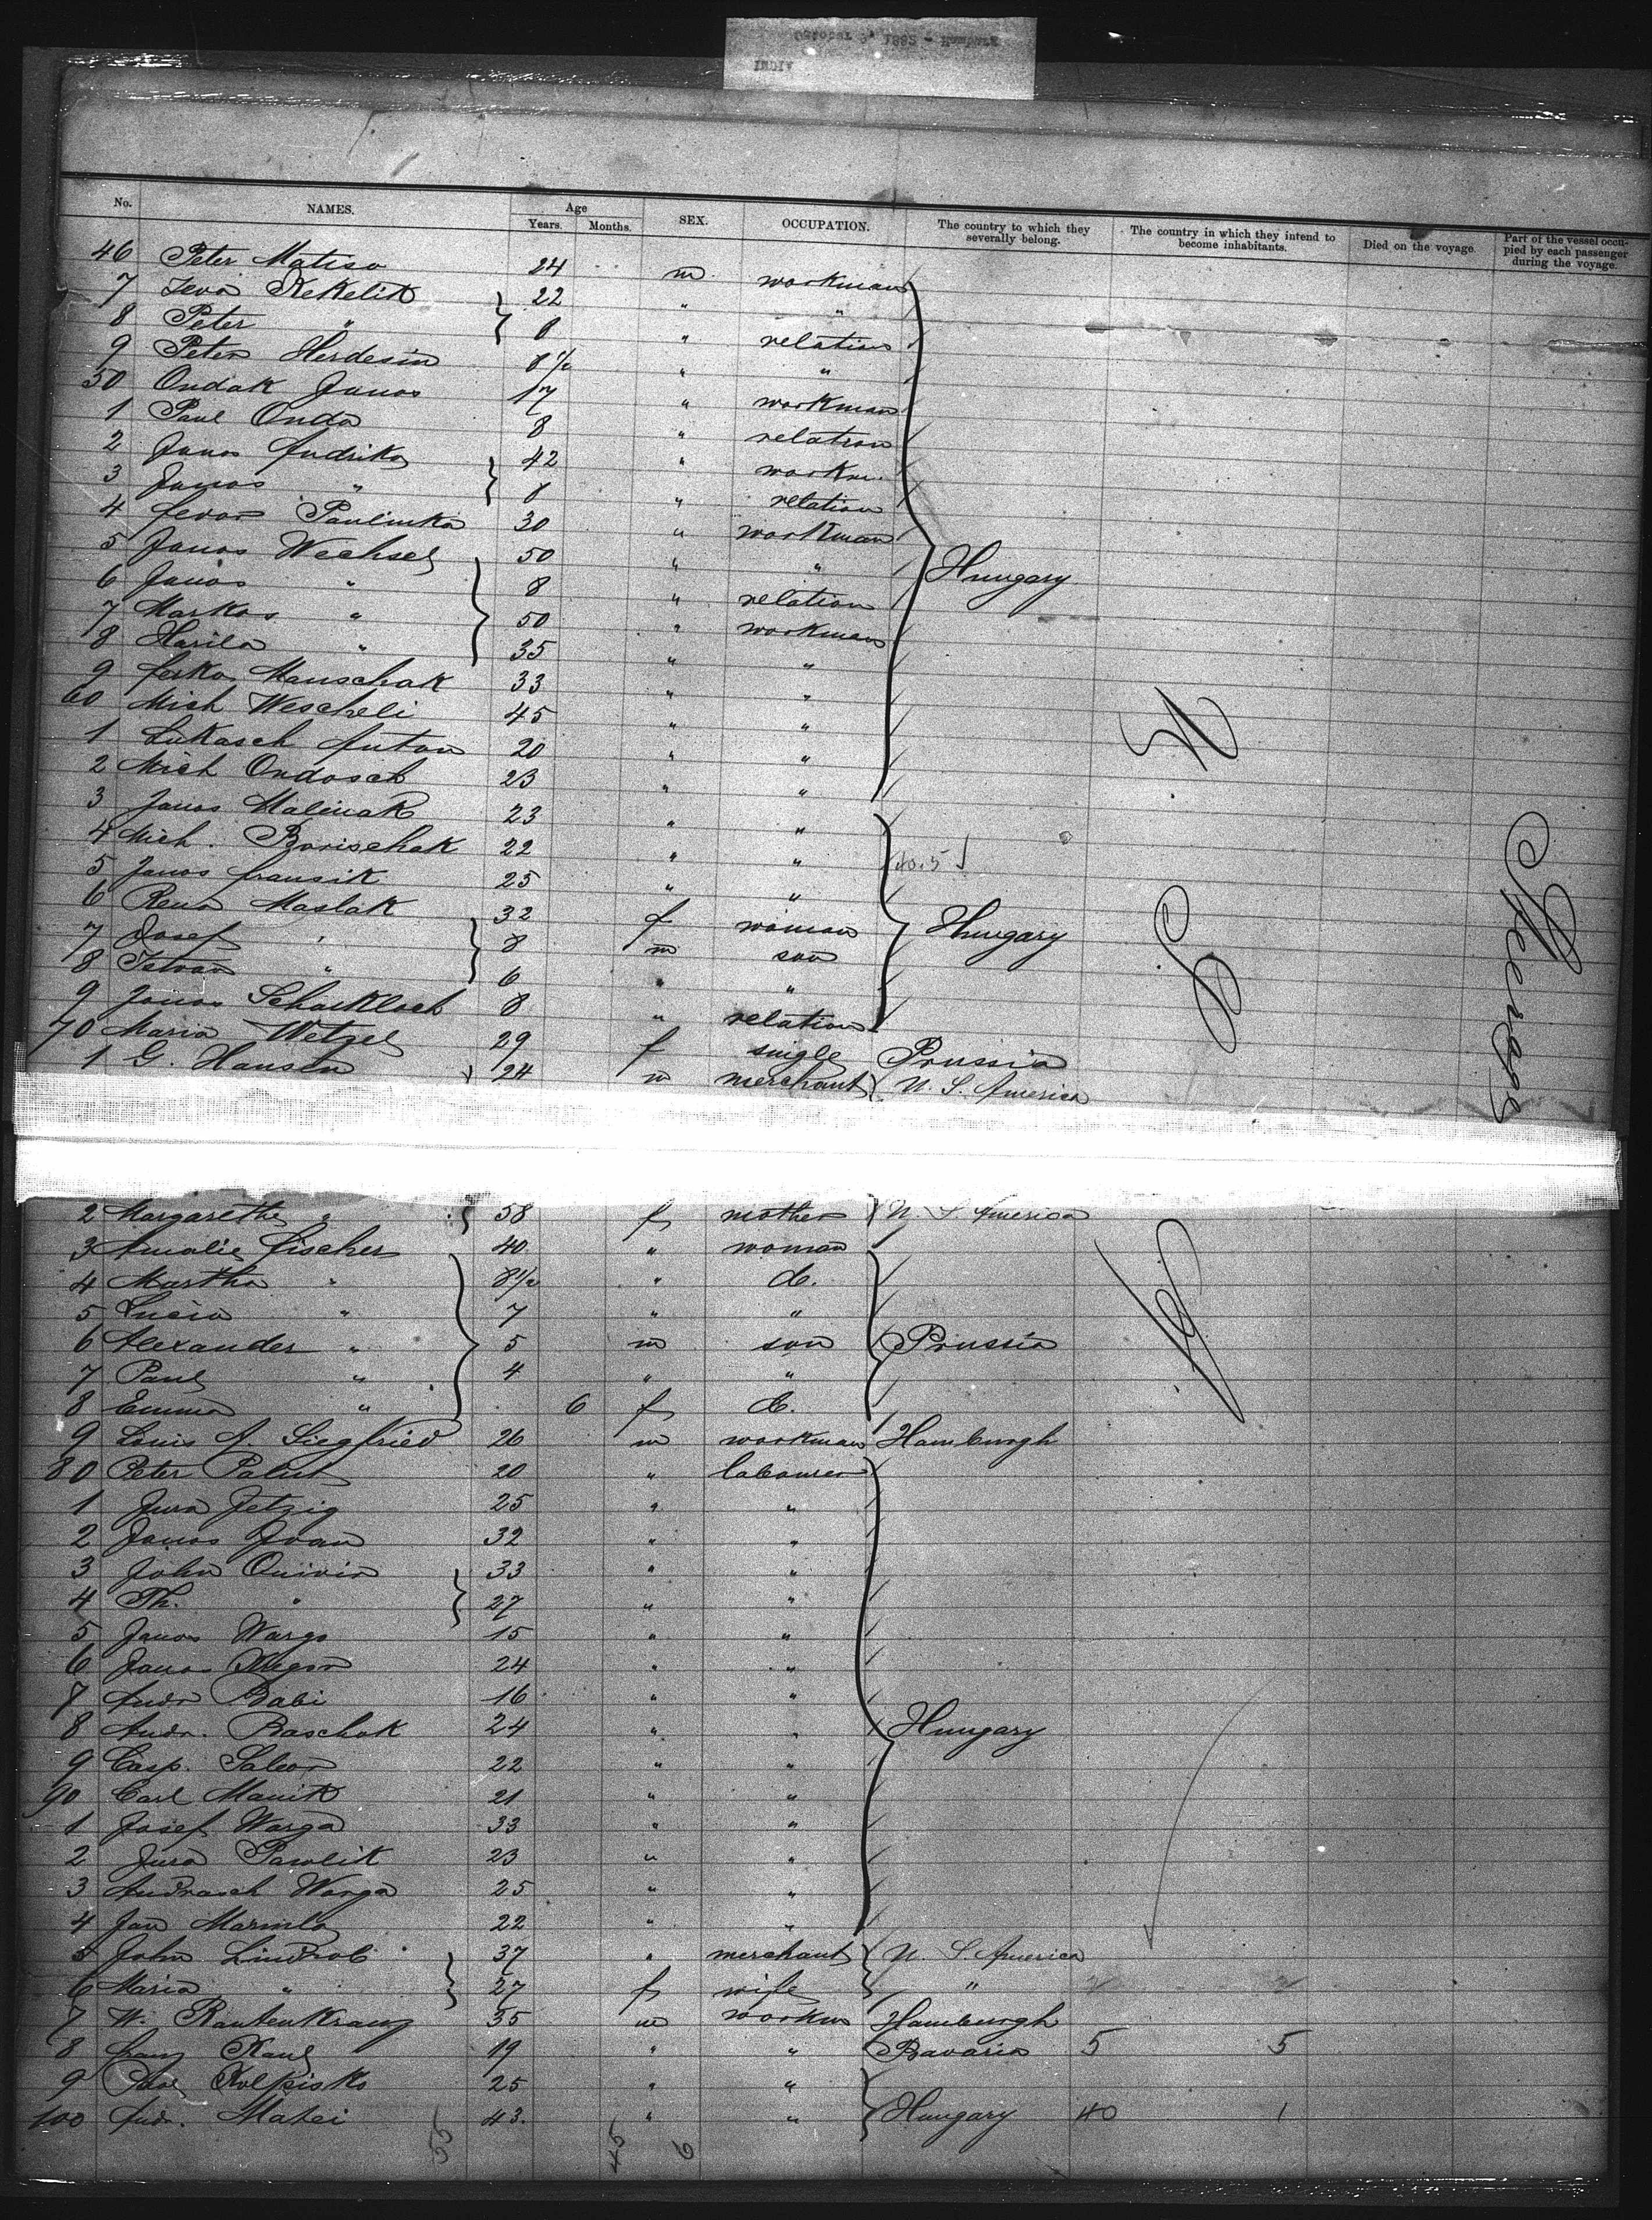 October 9, 1882 - Hamburg
INDIA
No. NAMES. Age Years. Months. SEX. OCCUPATION. The country to which they severally belong. The country in which they intend to become inhabitants. Died on the voyage. Part of the vessel occupied by each passenger during the voyage.
46 Peter Matiso 24 m workman
7 Ieva Kekelik 22 " "
8 Peter " 8 " relation
9 Peter Herdesin 8 1/2 " "
50 Ondak Janos 17 " workman
1 Paul Onda 8 " relation
2 Janos Andriko 42 " workm.
3 Janos " 8 " relation
4 Paulinka 30 " workman
5 Janos Wechsel 50 " " Hungary
6 Janos " 8 " relation
7 Markos " 50 " workman
8 Harila " 35 " "
9 Ferko Manschak 33 " "
60 Mich Wescheli 45 " "
1 Lukasch Anton 20 " "
2 Mich Ondosch 23 " "
3 Janos Malinak 23 " "
4 Mich. Borischak 22 " "
5 Janos Fransik 25 " "
6 Rena Maslak 32 f woman Hungary
7 Josef " 8 m son
8 Istvan " 6 " "
9 Janos Scharkloch 8 " relation
70 Maria Wetzel 29 f single Prussia
1 G. Hansen 24 m merchant U. S. America
Steerage
2 Margarethe " 58 f mother U. S. America
3 Amalie Fischer 40 " woman
4 Martha " 8 1/2 " d.
5 Lucia " 7 " "
6 Alexander " 5 m son Prussia
7 Paul " 4 " "
8 Emma " 6 f d.
9 Louis A Siegfried 26 m workman Hamburgh
80 Peter Palut 20 " labourer
1 Jura Jetzig 25 " "
2 Janos Ivan 32 " "
3 John Quirin 33 " "
4 Th. " 27 " "
5 Janos Wargo 15 " "
6 Janos 24 " "
7 Andr Babi 16 " "
8 Andr. Baschak 24 " " Hungary
9 Casp. Saleor 22 " "
90 Carl Manik 21 " "
1 Josef Warga 33 " "
2 Jura Pawlik 23 " "
3 Andrasch Warga 25 " "
4 Jan Marinla 22 " "
5 John Lindrob 37 " merchant U. S. America
6 Maria " 27 f wife "
7 W. Rautenkranz 35 m workm Hamburgh
8 Franz Kaul 19 " " Bavaria 5 5
9 25 " "
100 Andr. Matei 43. " " Hungary 40 1
55 45 6